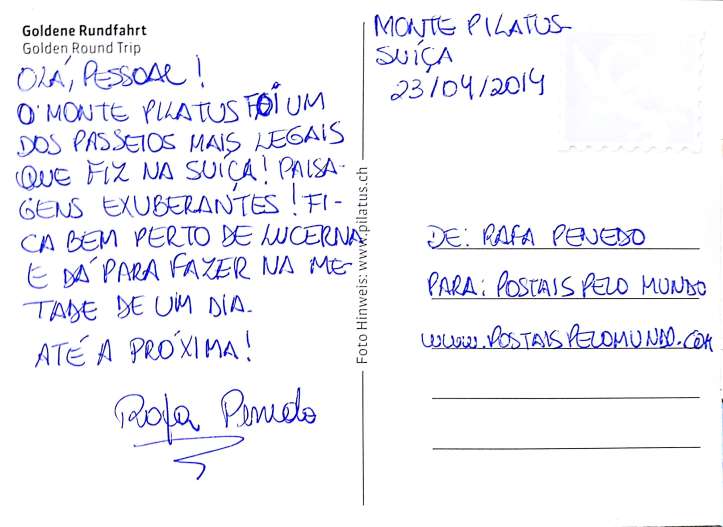 Goldene Rundfahrt
Golden Round Trip
OLÁ, PESSOAL!
O MONTE PILATUS FOI UM
DOS PASSEIOS MAIS LEGAIS
QUE FIZ NA SUÍÇA! PAISA-
GENS EXUBERANTES! FI-
CA BEM PERTO DE LUCERNA
E DÁ PARA FAZER NA ME-
TADE DE UM DIA.
ATÉ A PRÓXIMA!
Rafa Penedo
Foto Hinweis: www.pilatus.ch
MONTE PILATUS
SUÍÇA
23/04/2014
DE: RAFA PENEDO
PARA: POSTAIS PELO MUNDO
www.POSTAISPELOMUNDO.COM